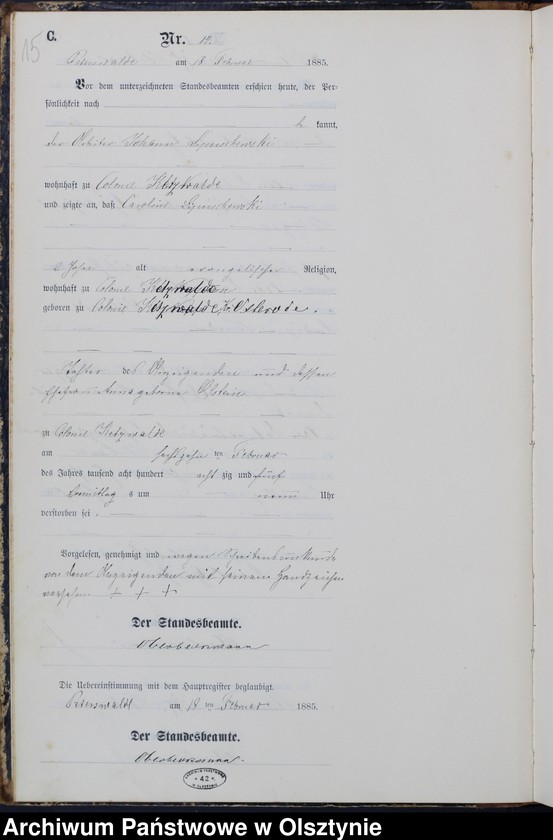 15
C. Nr.
am 18 Februar 1885.
Vor dem unterzeichneten Standesbeamten erschien heute, der Per-
sönlichkeit nach
kannt,
der Arbeiter Johann
wohnhaft zu Colonie
und zeigte an, daß Caroline
alt evangelischer Religion,
wohnhaft zu Colonie
geboren zu Colonie Osterode.
Tochter des Anzeigenden und dessen
Ehefrau Anna geborne
zu Colonie
am sechszehn ten Februar
des Jahres tausend acht hundert acht zig und fünf
Vormittag s um neun Uhr
verstorben sei.
Vorgelesen, genehmigt und wegen Schreibensunkunde
von dem Anzeigenden mit seinem Handzeichen
versehen + + +
Der Standesbeamte.
Die Uebereinstimmung mit dem Hauptregister beglaubigt.
Peterswaldt am 18 ten Februar 1885.
Der Standesbeamte.
42
Archiwum Państwowe w Olsztynie